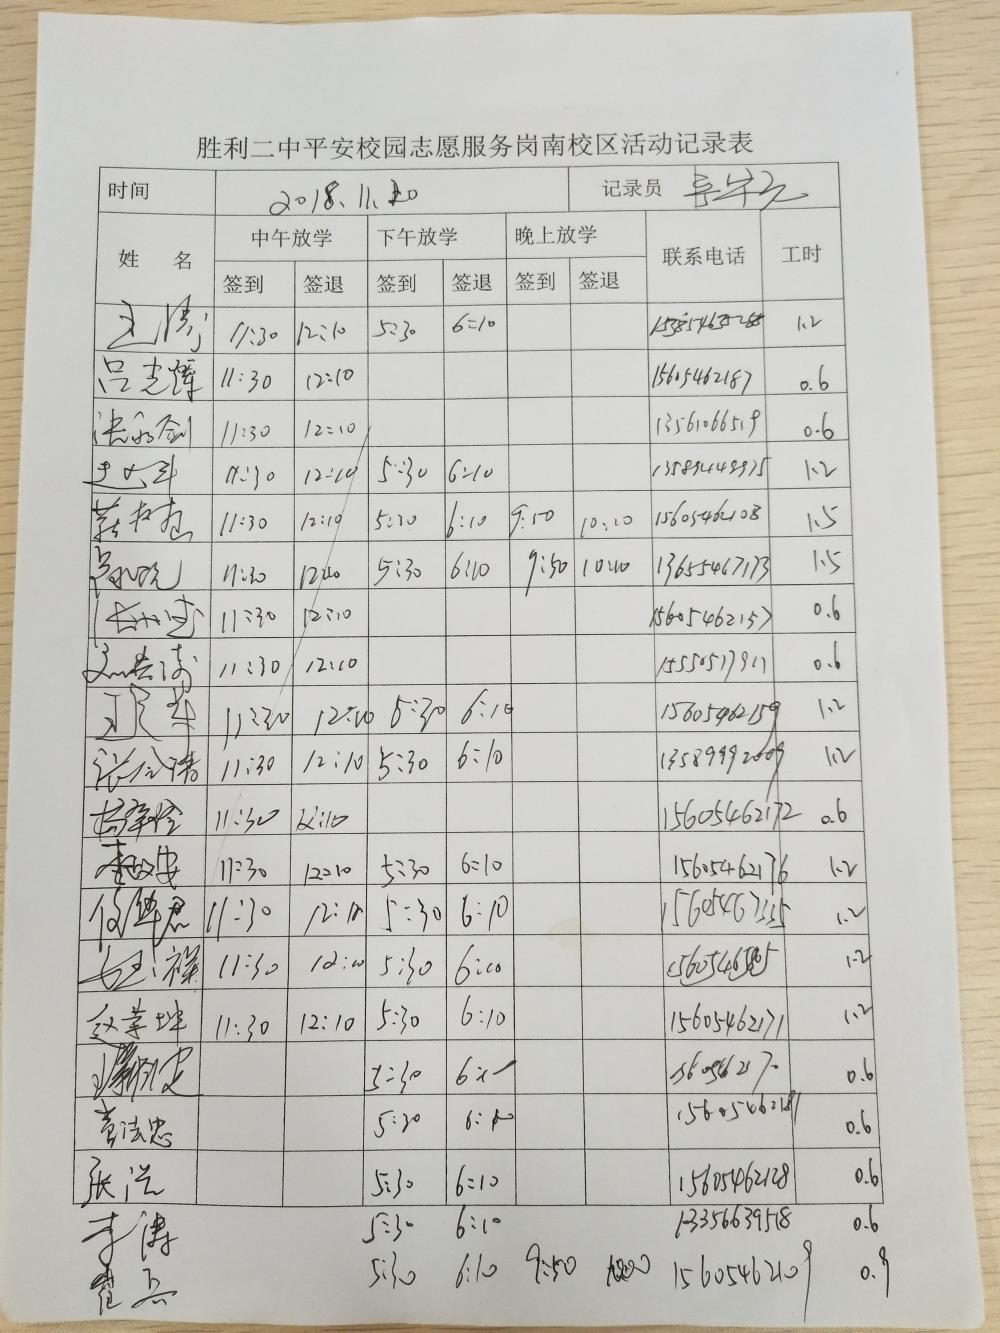 胜利二中平安校园志愿服务岗南校区活动记录表
时间 2018.11.20 记录员
姓 名 中午放学 下午放学 晚上放学 联系电话 工时
签到 签退 签到 签退 签到 签退
王涛 11:30 12:10 5:30 6:10 1.2
吕志辉 11:30 12:10 15605462187 0.6
11:30 12:10 13561066519 0.6
11:30 12:10 5:30 6:10 13589448975 1.2
11:30 12:10 5:30 6:10 9:50 10:10 15605462108 1.5
11:30 12:10 5:30 6:10 9:50 10:10 13655467173 1.5
11:30 12:10 15605462157 0.6
11:30 12:10 15550517911 0.6
11:30 12:10 5:30 6:10 15605462159 1.2
11:30 12:10 5:30 6:10 13589992009 1.2
11:30 12:10 15605462172 0.6
11:30 12:10 5:30 6:10 15605462176 1.2
11:30 12:10 5:30 6:10 1.2
11:30 12:10 5:30 6:10 1.2
11:30 12:10 5:30 6:10 15605462171 1.2
5:30 0.6
法忠 5:30 6:10 0.6
张浩 5:30 6:10 15605462128 0.6
李涛 5:30 6:10 13356639518 0.6
5:30 6:10 9:50 15605462109 0.9